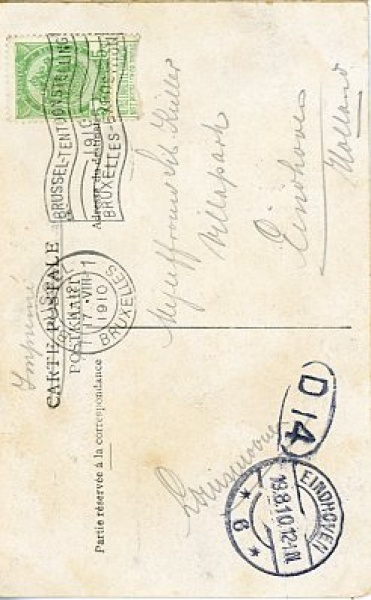 Imprimé
CARTE POSTALE
POSTKAART
Partie réservée à la correspondance
Adresse du destinataire
BRUSSEL-TENTOONSTELLING
1910
BRUXELLES-EXPOSITION
BRUXELLES
17 · VIII
1910
Villapark
Eindhoven
Holland
D 14
EINDHOVEN
19.8.10.12-1N
* 6 *